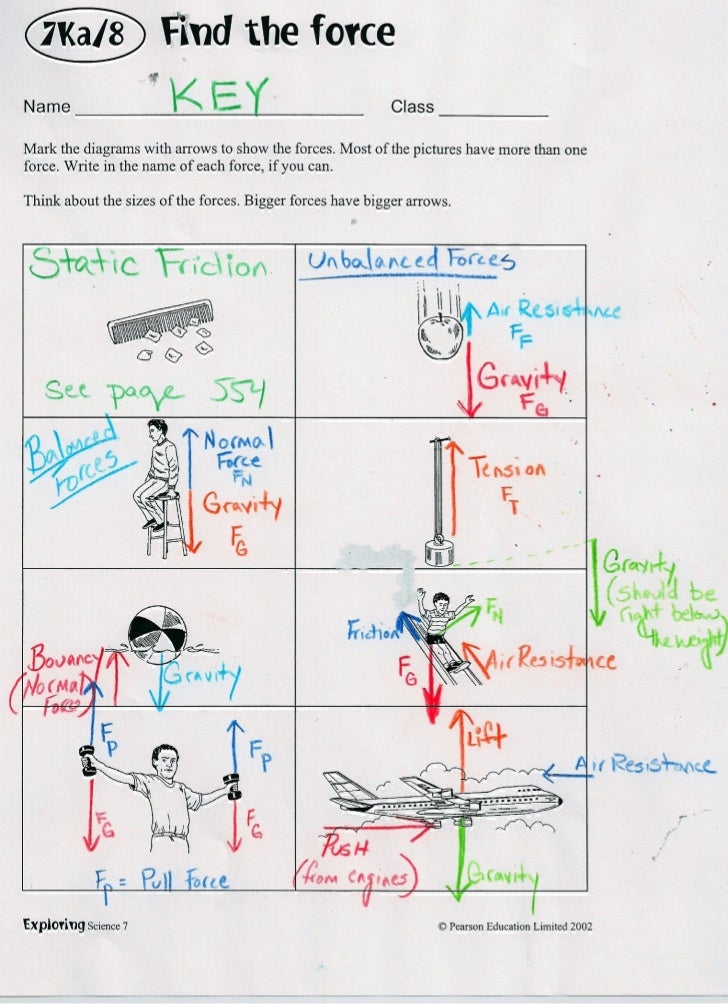 7Ka/8 Find the force
Name KEY Class
Mark the diagrams with arrows to show the forces. Most of the pictures have more than one
force. Write in the name of each force, if you can.
Think about the sizes of the forces. Bigger forces have bigger arrows.
Static Friction
See page 554
Unbalanced Forces
Air Resistance
FF
Gravity
FG
Balanced
Forces
Normal
Force
FN
Gravity
FG
Tension
FT
Gravity
(should be
right below
the weight)
Bouancy
(Normal
Force)
Gravity
Friction
FN
FG
Air Resistance
FP
FP
FG
FG
FP = Pull Force
Lift
Air Resistance
Push
(from engines)
Gravity
Exploring Science 7
© Pearson Education Limited 2002